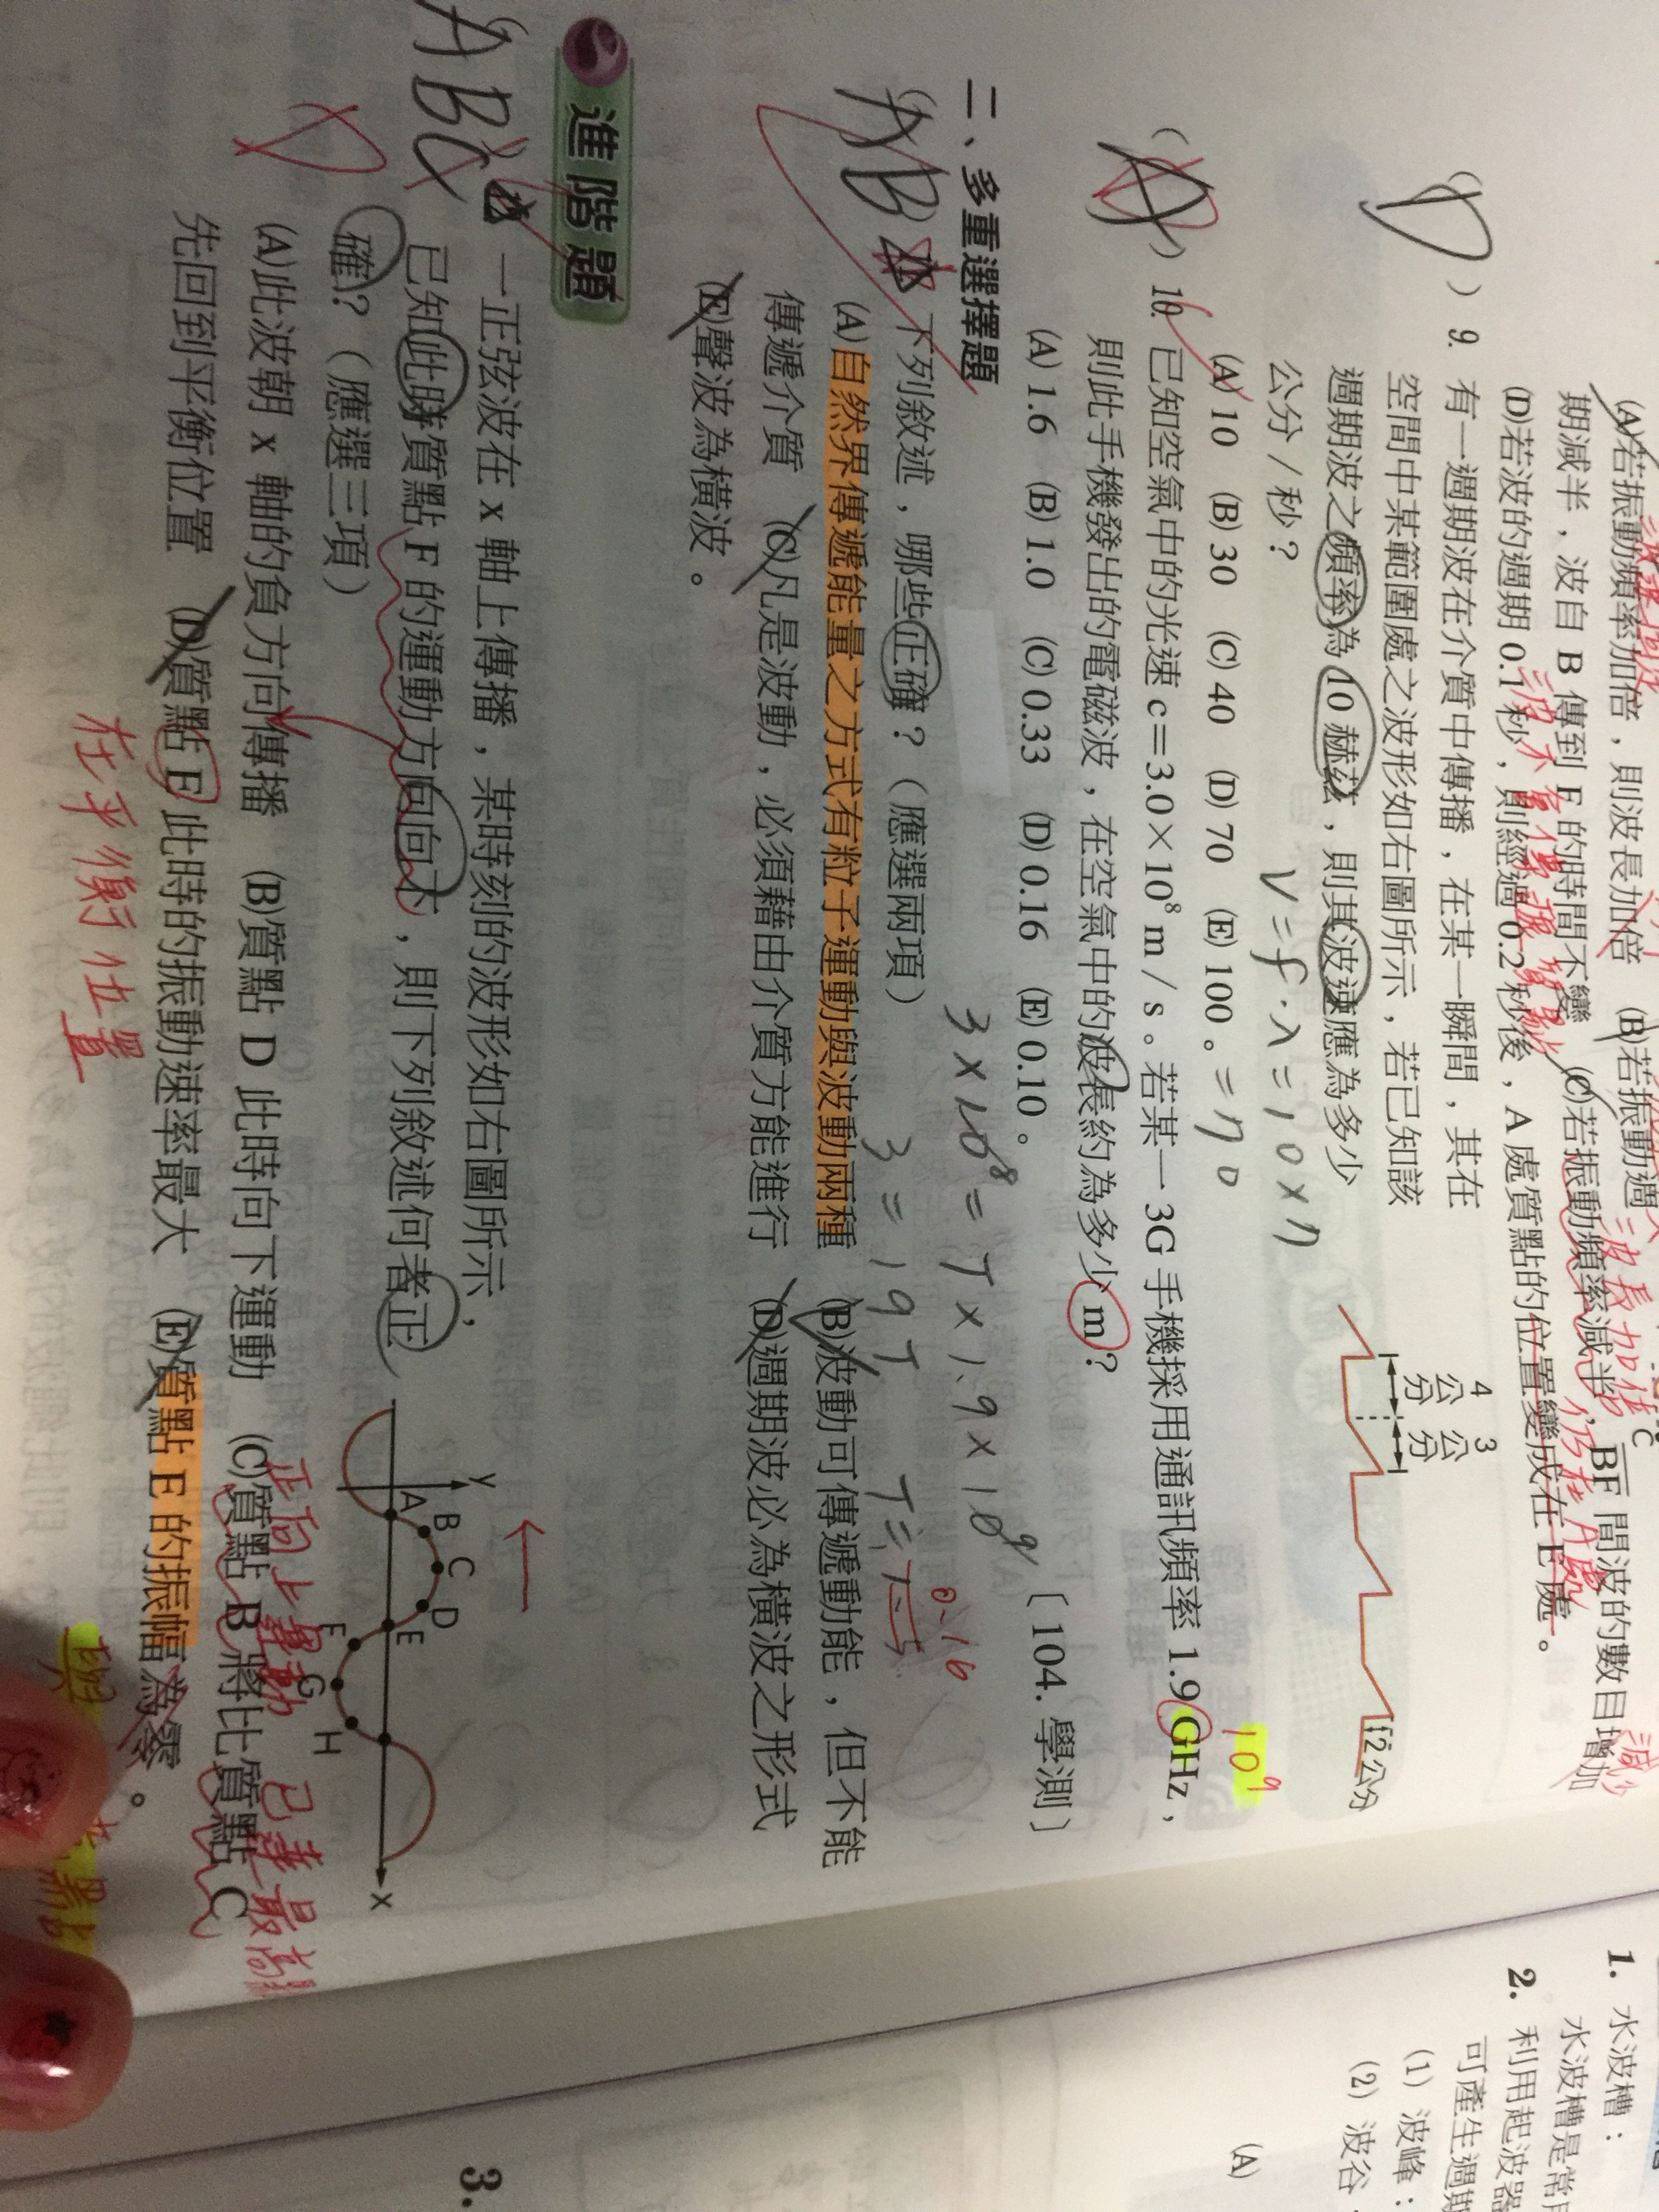 (A)若振動頻率加倍，則波長加倍 (B)若振動週
期減半，波自 B 傳到 F 的時間不變 (C)若振動頻率減半，BF 間波的數目增加
(D)若波的週期 0.1 秒，則經過 0.2 秒後，A 處質點的位置變成在 E 處。
波長加倍
減少
仍在 A 處
C
(D) 9. 有一週期波在介質中傳播，在某一瞬間，其在
空間中某範圍處之波形如右圖所示，若已知該
週期波之頻率為 10 赫茲，則其波速應為多少
公分／秒？
(A) 10 (B) 30 (C) 40 (D) 70 (E) 100。
V = f · λ = 10 × 7
= 70
4公分
3公分
2公分
(D) 10. 已知空氣中的光速 c＝3.0×10⁸ m／s。若某一 3G 手機採用通訊頻率 1.9GHz，
則此手機發出的電磁波，在空氣中的波長約為多少 m？
(A) 1.6 (B) 1.0 (C) 0.33 (D) 0.16 (E) 0.10。
〔104. 學測〕
10⁹
3 × 10⁸ = T × 1.9 × 10⁹
3 = 19T
0.16
二、多重選擇題
AB 下列敘述，哪些正確？（應選兩項）
(A)自然界傳遞能量之方式有粒子運動與波動兩種 (B)波動可傳遞動能，但不能
傳遞介質 (C)凡是波動，必須藉由介質方能進行 (D)週期波必為橫波之形式
(E)聲波為橫波。
進階題
ABC 一正弦波在 x 軸上傳播，某時刻的波形如右圖所示，
已知此時質點 F 的運動方向向下，則下列敘述何者正
確？（應選三項）
(A)此波朝 x 軸的負方向傳播 (B)質點 D 此時向下運動 (C)質點 B 將比質點 C
先回到平衡位置 (D)質點 F 此時的振動速率最大 (E)質點 E 的振幅為零。
D
y
A B C D E F G H
x
正向上運動 已達最高點
在平衡位置
1. 水波槽：
水波槽是常用
2. 利用起波器
可產生週期
(1) 波峰：
(2) 波谷
(A)
3.